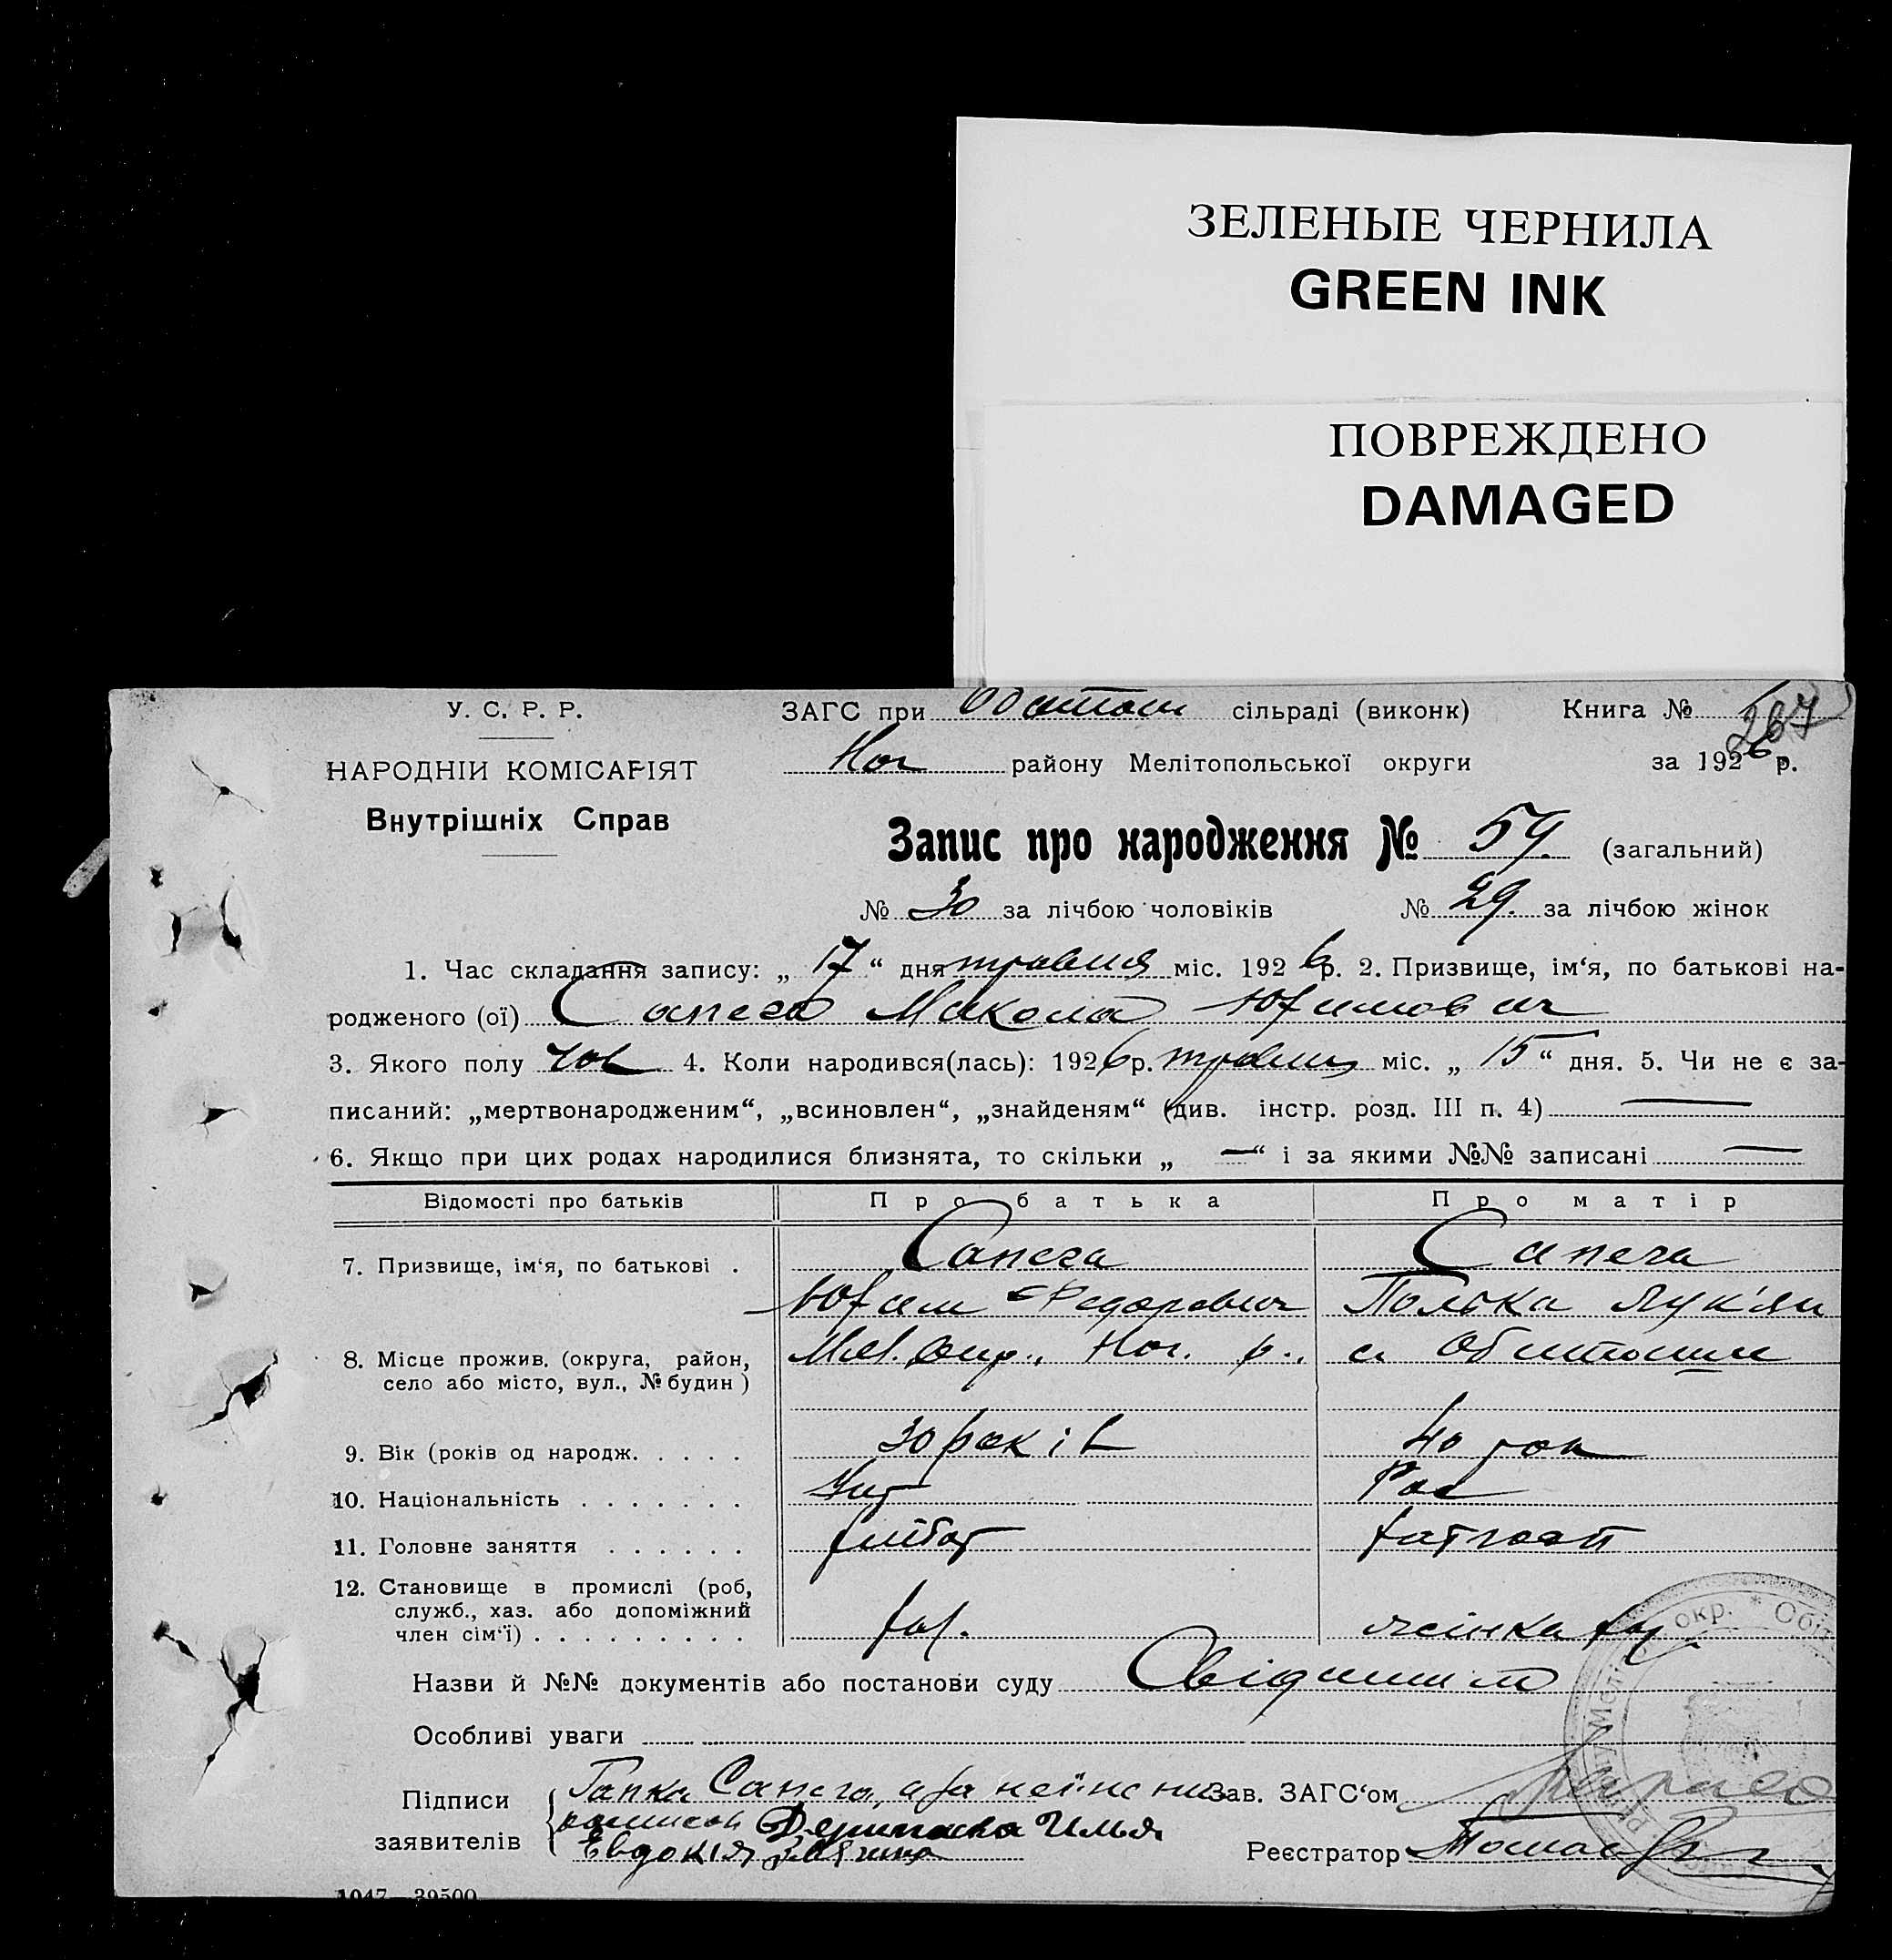 ЗЕЛЕНЫЕ ЧЕРНИЛА
GREEN INK
ПОВРЕЖДЕНО
DAMAGED
У. С. Р. Р.
ЗАГС при сільраді (виконк) Книга №
267
НАРОДНІИ КОМІСАРІЯТ
Ног району Мелітопольської округи за 1926 р.
Внутрішніх Справ
Запис про народження № 59. (загальний)
№ 30 за лічбою чоловіків № 29. за лічбою жінок
1. Час складання запису: „ 17 “ дня травня міс. 1926 р. 2. Призвище, ім‘я, по батькові на-
родженого (ої) Сапега Микола Юхимович
3. Якого полу чол 4. Коли народився(лась): 1926 р. травня міс. „ 15 “ дня. 5. Чи не є за-
писаний: „мертвонародженим“, „всиновлен“, „знайденям“ (див. інстр. розд. III п. 4) —
6. Якщо при цих родах народилися близнята, то скільки „ — “ і за якими №№ записані —
Відомості про батьків Про батька Про матір
7. Призвище, ім‘я, по батькові . Сапега Сапега
Юхим Федорович Лук'ян
8. Місце прожив. (округа, район, Мел. Окр., Ног. р., с. Обиточне
село або місто, вул., № будин)
9. Вік (років од народж. . . . . 30 років 40 рок
10. Національність . . . . . . . Укр Рос
11. Головне заняття . . . . . . хлібор
12. Становище в промислі (роб,
служб., хаз. або допоміжний
член сім‘ї) . . . . . . . . . хаз. жінка хаз
Назви й №№ документів або постанови суду
Особливі уваги
Підписи Гапка Сапега, а за неї Зав. ЗАГС‘ом
заявителів Дерипаска Илья
Евдокія Реєстратор
1047—39500
окр. * Обіт